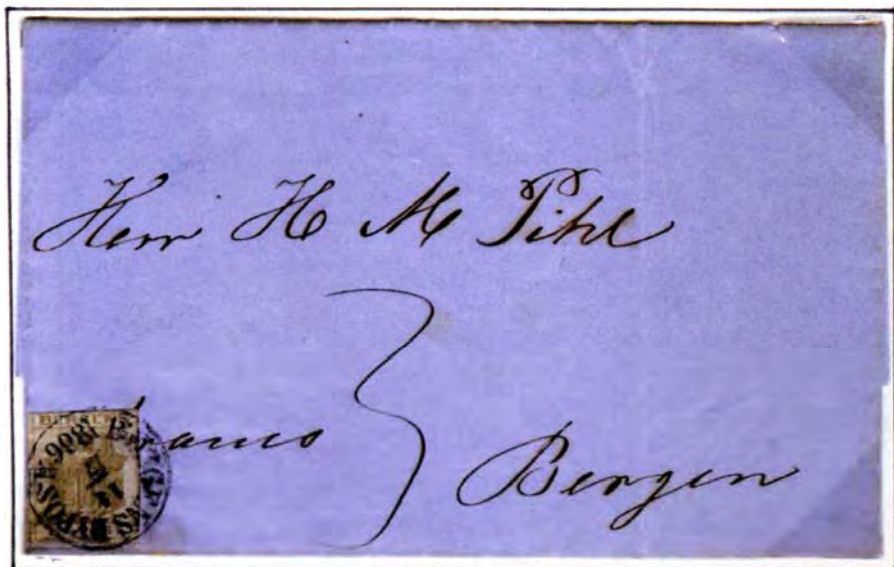 Herr H M Pihl
franco
Bergen
1866